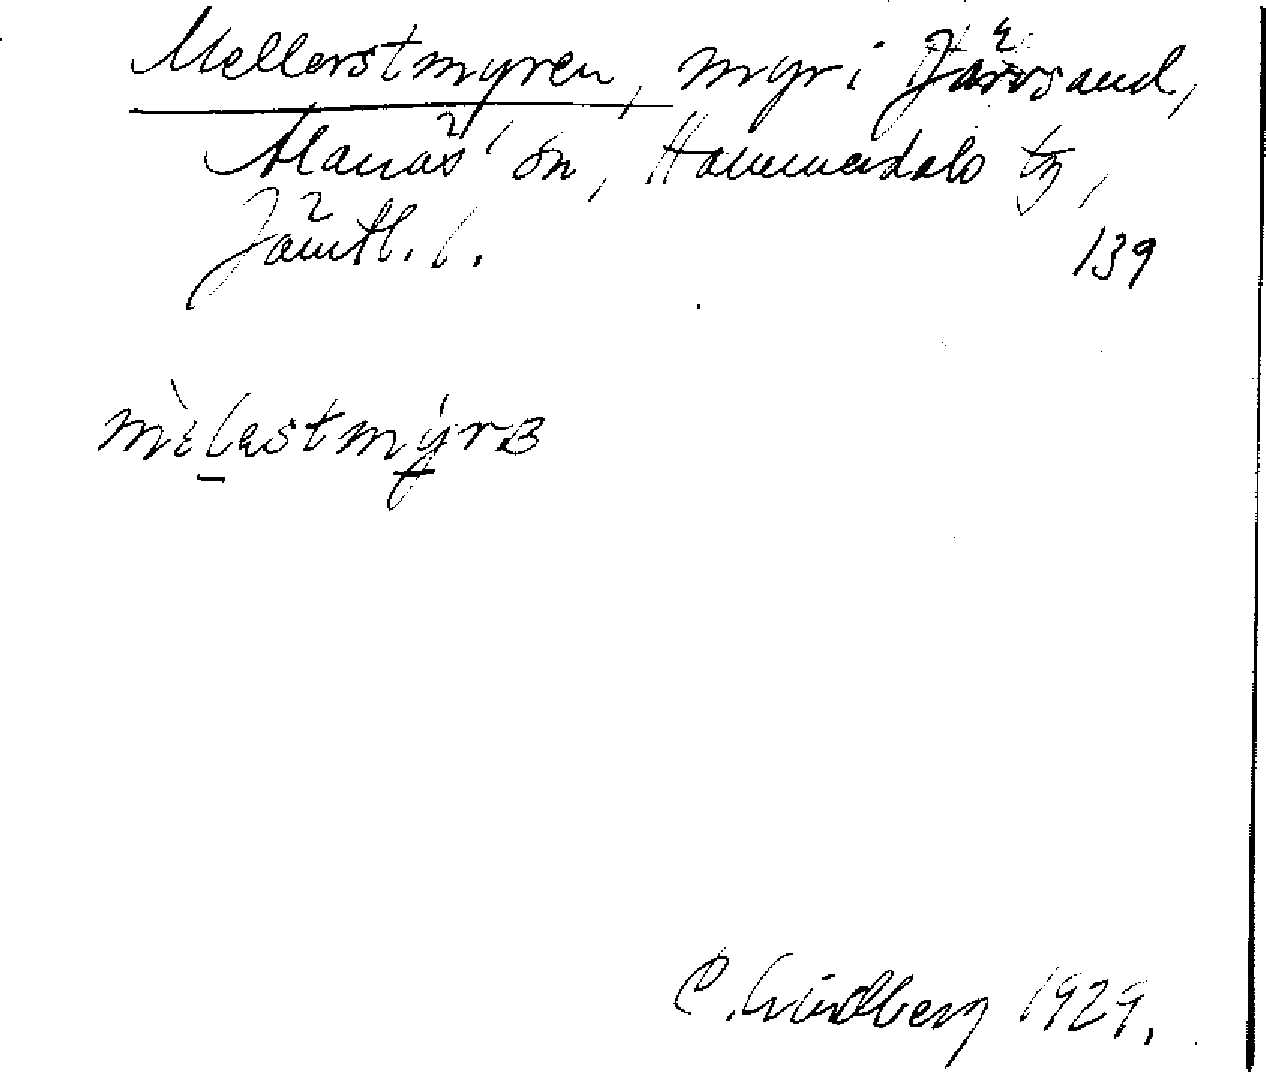 Mellerstmyren, myr i Järvsand,
Alanäs' sn, Hammerdals tg,
Jämtl. l.
139
mὲlestmýrʙ
C. Lindberg 1929.